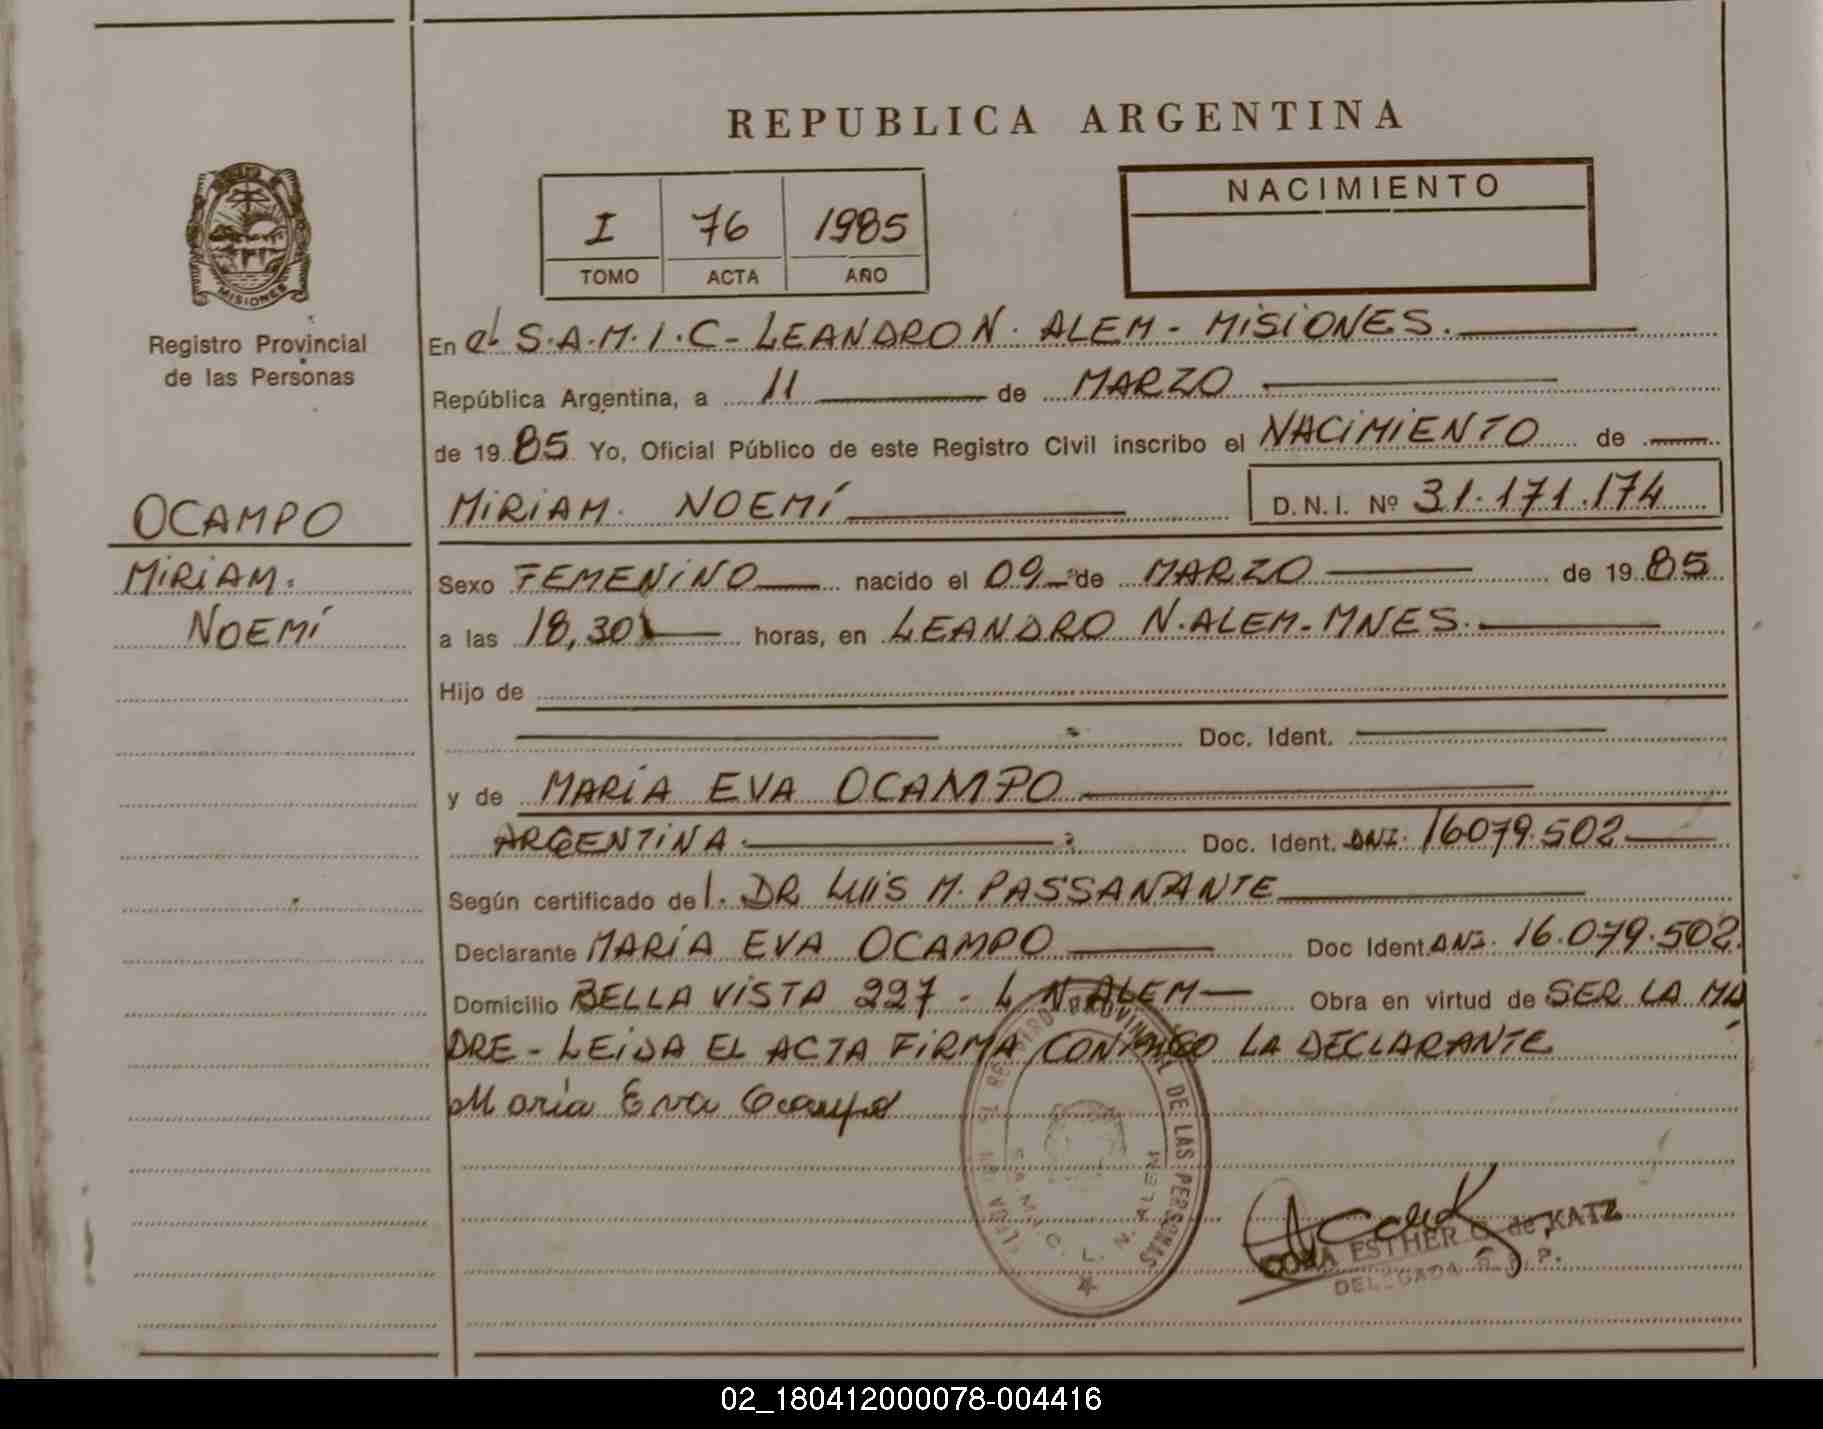 REPUBLICA ARGENTINA
I 76 1985
TOMO ACTA AÑO
NACIMIENTO
MISIONES
Registro Provincial
de las Personas
OCAMPO
MIRIAM.
NOEMÍ
En el S.A.M.I.C - LEANDRO N. ALEM - MISIONES.
República Argentina, a 11 de MARZO
de 19 85 Yo, Oficial Público de este Registro Civil inscribo el NACIMIENTO de
MIRIAM. NOEMÍ D.N.I. Nº 31.171.174
Sexo FEMENINO nacido el 09 de MARZO de 19 85
a las 18,30 horas, en LEANDRO N. ALEM - MNES.
Hijo de
Doc. Ident.
y de MARÍA EVA OCAMPO
ARGENTINA. Doc. Ident. DNI. 16079.502
Según certificado del. DR LUIS M. PASSANANTE
Declarante MARÍA EVA OCAMPO Doc Ident DNI. 16.079.502.
Domicilio BELLA VISTA 227 - L. N. ALEM Obra en virtud de SER LA MA
DRE - LEIDA EL ACTA FIRMA CONMIGO LA DECLARANTE
María Eva Ocampo
PROVINCIAL DE LAS PERSONAS
S.A.M.I.C. L. N. ALEM
ESTHER C. de KATZ
DELEGADA
02_180412000078-004416